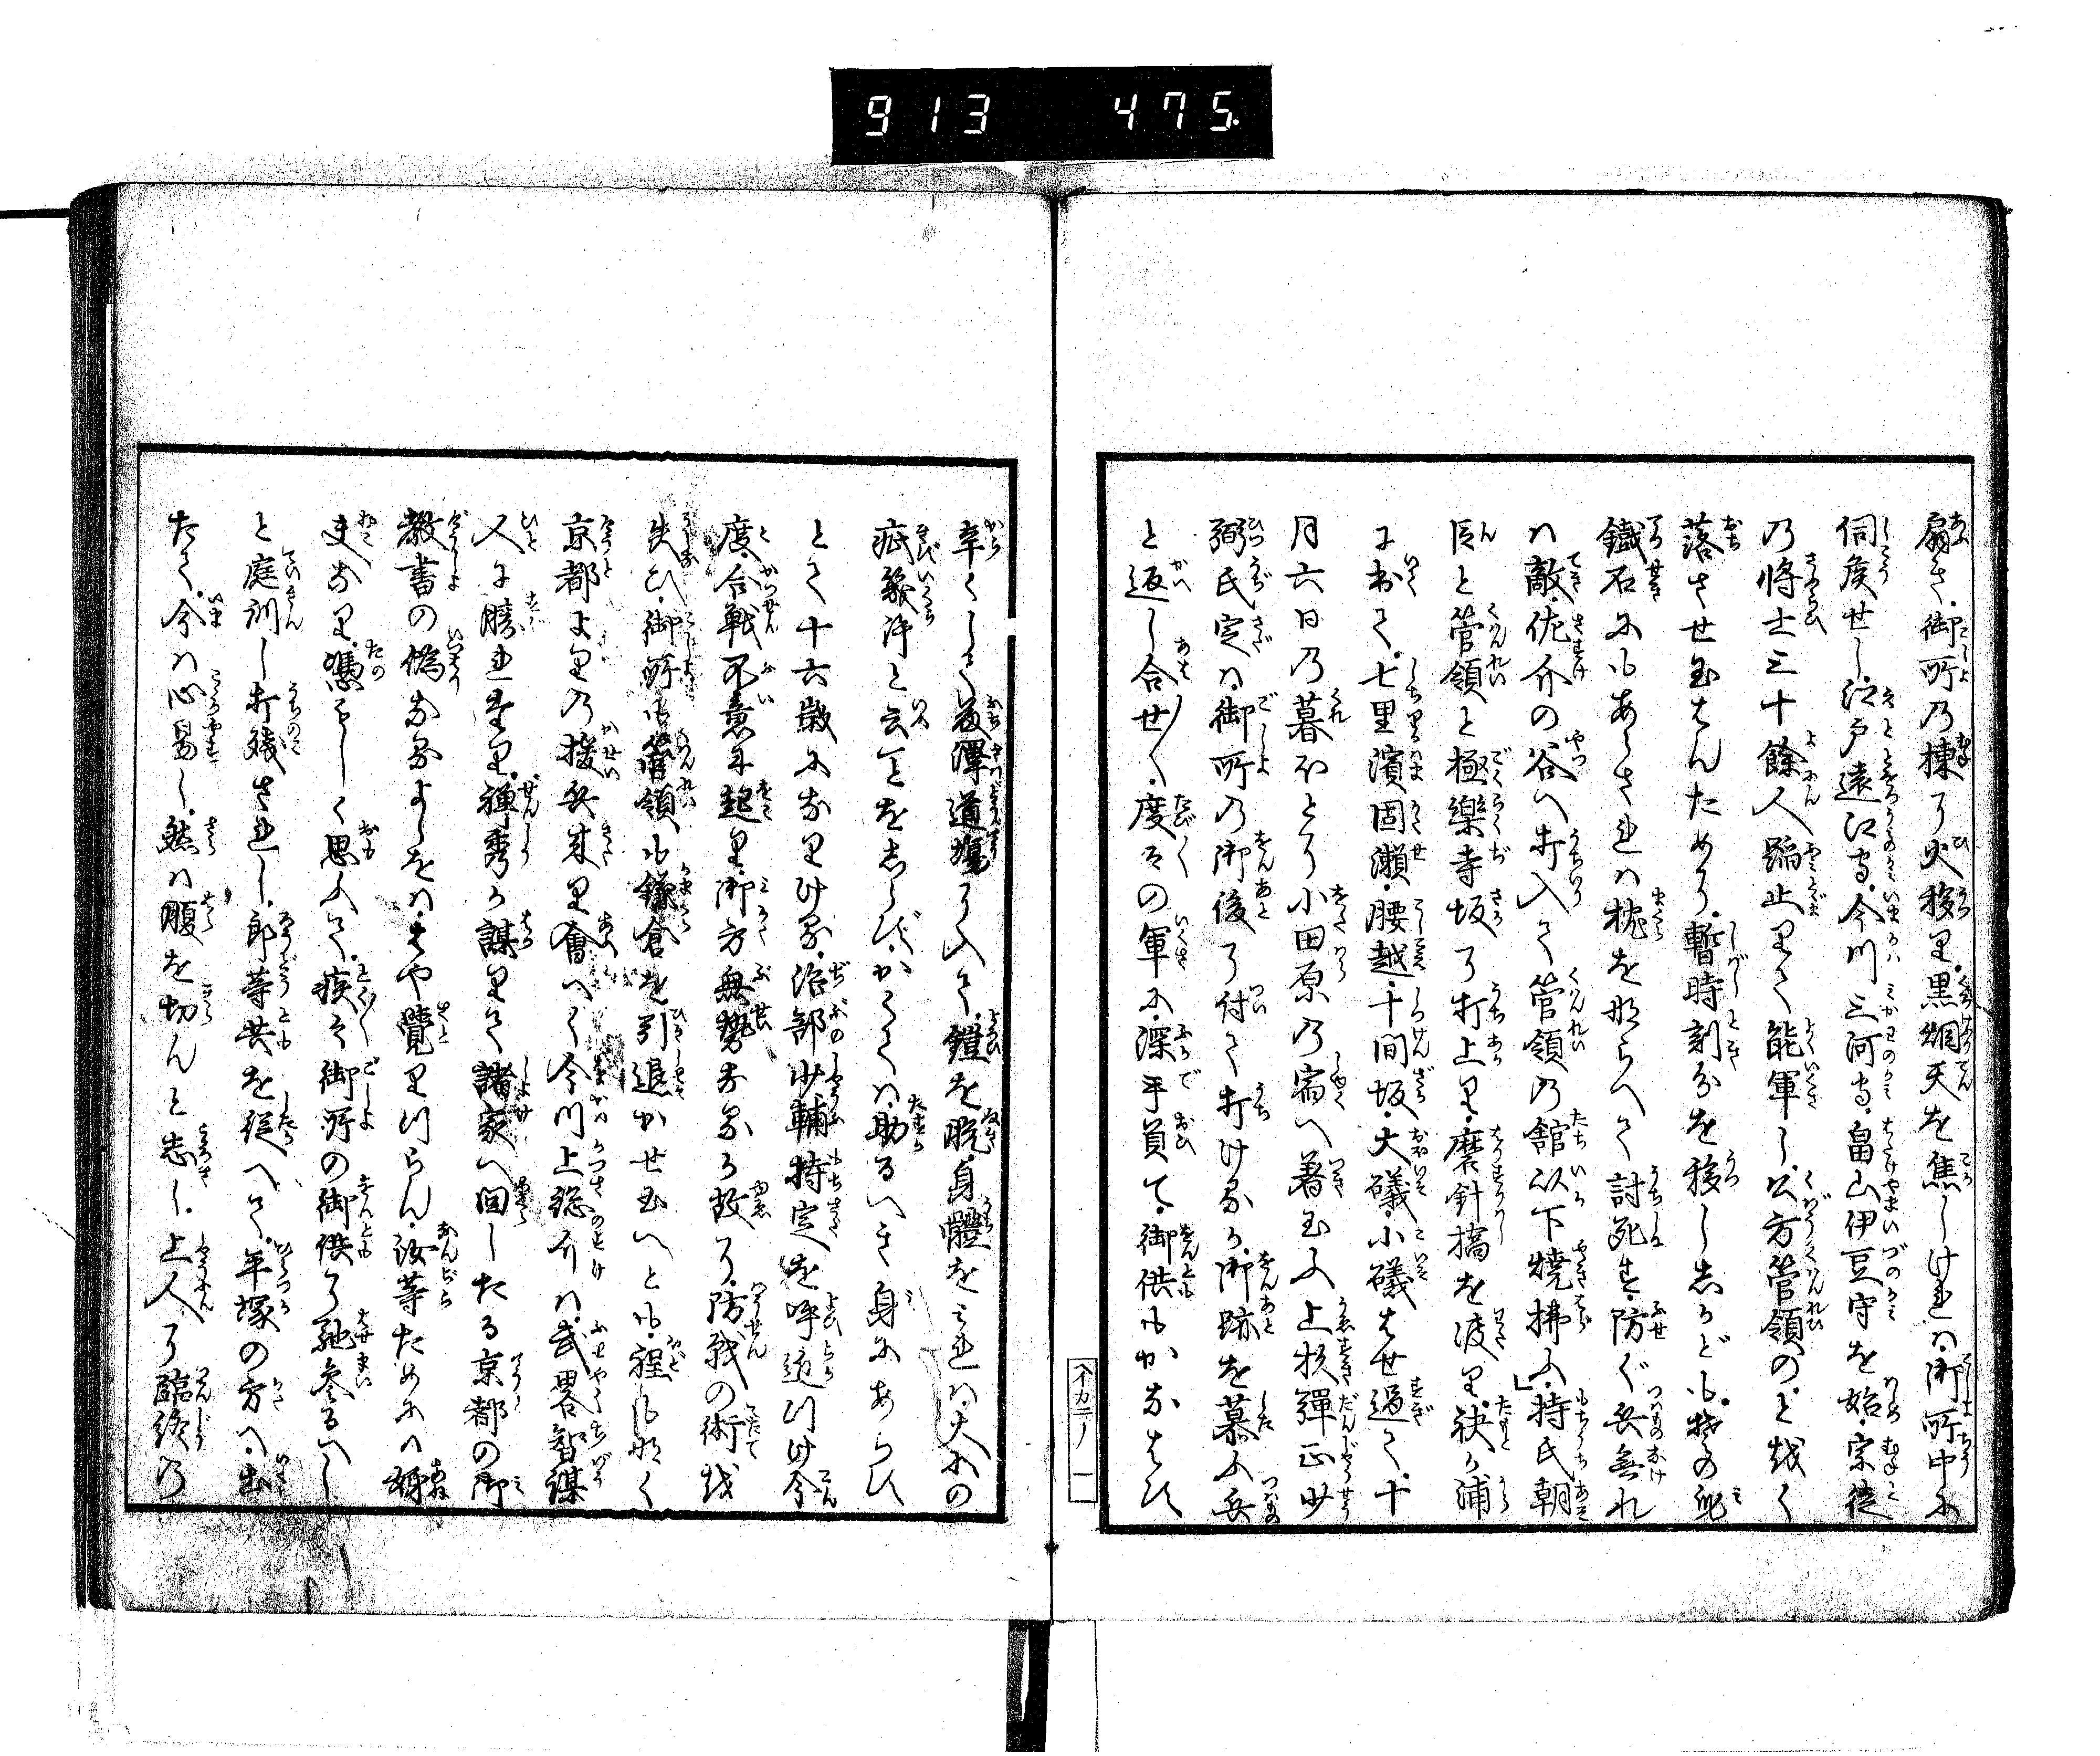 913 475.
扇き。御所乃棟に火移り。黒烟天を焦しけれハ。御所中に
伺候せし。江戸遠江守。今川三河守。畠山伊豆守を始。宗徒
乃将士三十餘人蹈止りて能軍し。公方管領のどかく
落させ玉はんために。暫時刻を移し
鐵石にもあらされハ枕を ならへて討死す。防ぐ兵無れ
ハ敵。佐介の谷へ打入て管領乃舘以下焼拂ふ。」持氏朝
臣と管領と極樂寺坂に打上り。磨針
橋を渡り。袂か浦
に出て。七里濱固瀬。腰越。十間坂。大礒。小礒はせ過て。十
月六日乃暮ほとに小田原乃宿へ着玉ふ上杉彈正少
弼氏定ハ。御所乃御後に付て打けるか。御跡を慕ふ兵
と返し合せ〱。度々の軍に。深手負て。御供もかなはす
イカ三ノ 一
辛くして藤澤道場に入て。鎧を脱。身體をみれハ。大小の
疵幾許と云ことをしらず。かくてハ。助るへき身にあらす
とて十六歳になりける。治部少輔持定を呼近つけ今
度。合戦不意に起り。御方無勢なるか故に。防戦の術を
失ひ。御所も管領も鎌倉を引退かせ玉へとも。程もなく
京都よりの援兵来り會へく今川上総介ハ。武畧智謀
人に勝れたり。禅秀か謀りて諸家へ回したる京都の御
教書の偽なるよしをハ。はや覺りつらん。汝等ためにハ姉
夫なり。憑もしく思ふて。疾々御所の御供に馳参るへし
と庭訓し打残されし。郎等共を従へて。平塚の方へ。出
たて。今ハ心易し。然ハ腹を切んと志し。上人に臨終乃